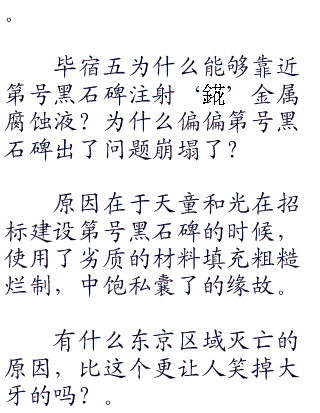 。
毕宿五为什么能够靠近
第号黑石碑注射‘錵’金属
腐蚀液？为什么偏偏第号黑
石碑出了问题崩塌了？
原因在于天童和光在招
标建设第号黑石碑的时候，
使用了劣质的材料填充粗糙
烂制，中饱私囊了的缘故。
有什么东京区域灭亡的
原因，比这个更让人笑掉大
牙的吗？。